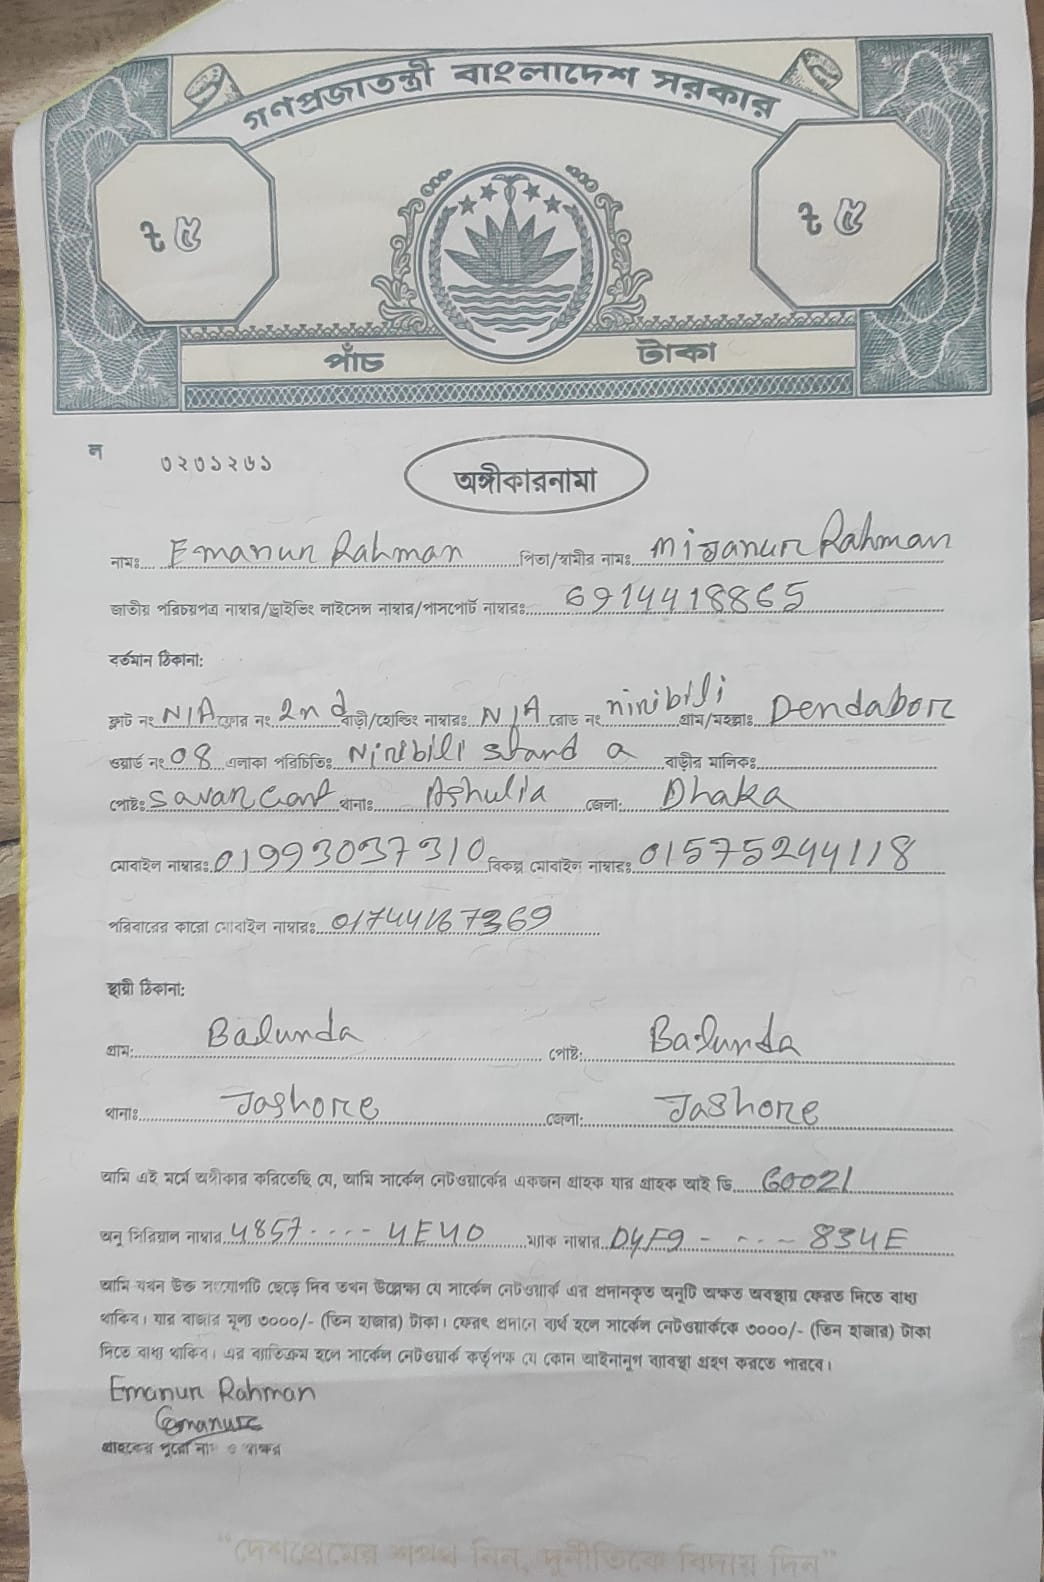 গণপ্রজাতন্ত্রী বাংলাদেশ সরকার
৳ ৫ ৳ ৫
পাঁচ টাকা
ল ৩২৩১২৬১
অঙ্গীকারনামা
নামঃ Emanur Rahman পিতা/স্বামীর নামঃ Mizanur Rahman
জাতীয় পরিচয়পত্র নাম্বার/ড্রাইভিং লাইসেন্স নাম্বার/পাসপোর্ট নাম্বারঃ 6914418865
বর্তমান ঠিকানা:
ফ্লাট নং N/A ফ্লোর নং 2nd বাড়ী/হোল্ডিং নাম্বারঃ N/A রোড নং ninibili গ্রাম/মহল্লাঃ Dendabor
ওয়ার্ড নং 08 এলাকা পরিচিতিঃ Niribili stand a বাড়ীর মালিকঃ
পোষ্টঃ Savar Cant থানাঃ Ashulia জেলা: Dhaka
মোবাইল নাম্বারঃ 01993037310 বিকল্প মোবাইল নাম্বারঃ 01575244118
পরিবারের কারো মোবাইল নাম্বারঃ 01744167369
স্থায়ী ঠিকানা:
গ্রাম: Balunda পোষ্ট: Balunda
থানাঃ Jashore জেলা: Jashore
আমি এই মর্মে অঙ্গীকার করিতেছি যে, আমি সার্কেল নেটওয়ার্কের একজন গ্রাহক যার গ্রাহক আই ডি 60021
অনু সিরিয়াল নাম্বার 4857 ···- 4E40 ম্যাক নাম্বার D4F9 - ···- 834E
আমি যখন উক্ত সংযোগটি ছেড়ে দিব তখন উল্লেক্ষ্য যে সার্কেল নেটওয়ার্ক এর প্রদানকৃত অনুটি অক্ষত অবস্থায় ফেরত দিতে বাধ্য
থাকিব। যার বাজার মূল্য ৩০০০/- (তিন হাজার) টাকা। ফেরৎ প্রদানে ব্যর্থ হলে সার্কেল নেটওয়ার্ককে ৩০০০/- (তিন হাজার) টাকা
দিতে বাধ্য থাকিব। এর ব্যতিক্রম হলে সার্কেল নেটওয়ার্ক কর্তৃপক্ষ যে কোন আইনানুগ ব্যবস্থা গ্রহণ করতে পারবে।
Emanur Rahman
Emanur
গ্রাহকের পুরো নাম ও স্বাক্ষর
"দেশপ্রেমের শপথ নিন, দুর্নীতিকে বিদায় দিন"